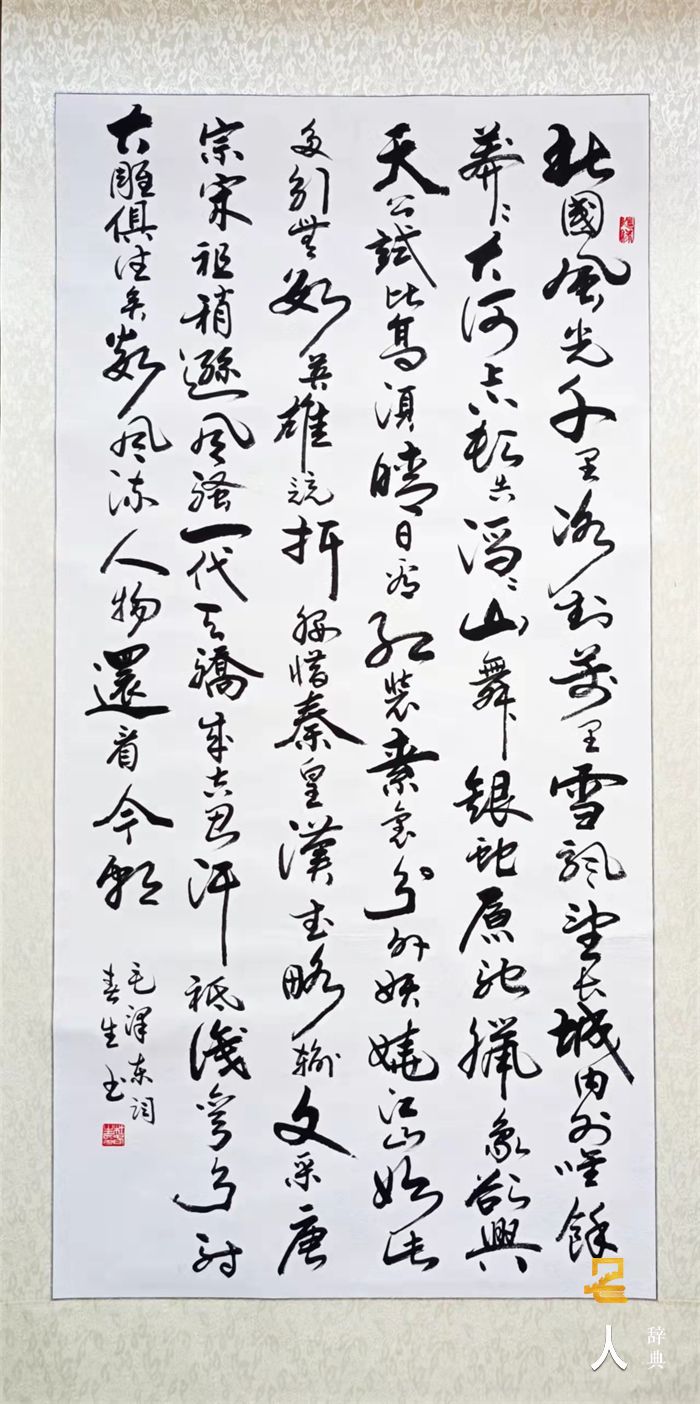 北國風光千里冰封萬里雪飄望长城内外唯餘
莽〻大河上下頓失滔〻山舞銀蛇原馳臘象欲與
天公試比高須晴日看紅裝素裹分外妖嬈江山如此
多引無數英雄競折腰惜秦皇漢武略輸文采唐
宗宋祖稍遜風騷一代天驕成吉思汗祗識彎弓射
大雕俱往矣數風流人物還看今朝
毛澤东詞
春生书
人
辞典